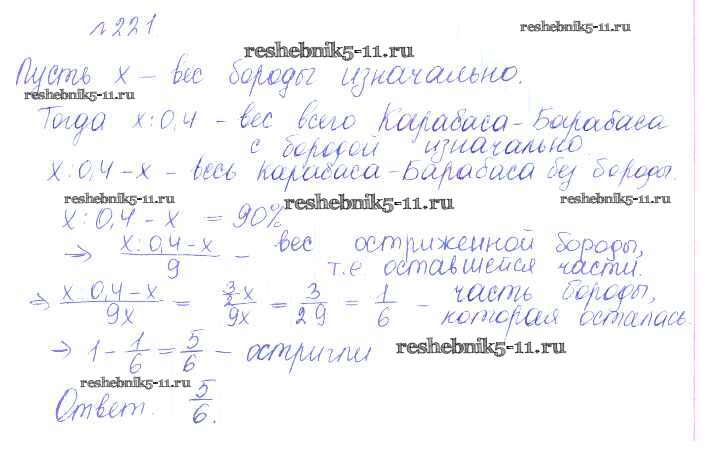 №221.
reshebnik5-11.ru
reshebnik5-11.ru
Пусть x – вес бороды изначально.
reshebnik5-11.ru
Тогда x:0,4 – вес всего Карабаса-Барабаса
с бородой изначально.
x:0,4-x – весь Карабаса-Барабаса без бороды.
reshebnik5-11.ru reshebnik5-11.ru reshebnik5-11.ru
x:0,4-x = 90%
⇒ (x:0,4-x)/9 – вес остриженной бороды,
т.е оставшейся части.
⇒ (x 0,4-x)/9x = (3/2 x)/9x = 3/29 = 1/6 – часть бороды,
которая осталась.
→ 1-1/6=5/6 – остригли
reshebnik5-11.ru
reshebnik5-11.ru
Ответ. 5/6.